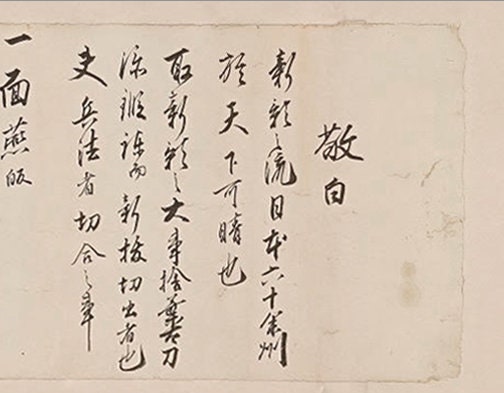 敬白
新影之流日本六十余州
於天下可晴也
取新影之大事捨刀
新抜切出者也
夫兵法者切合之事
一面燕